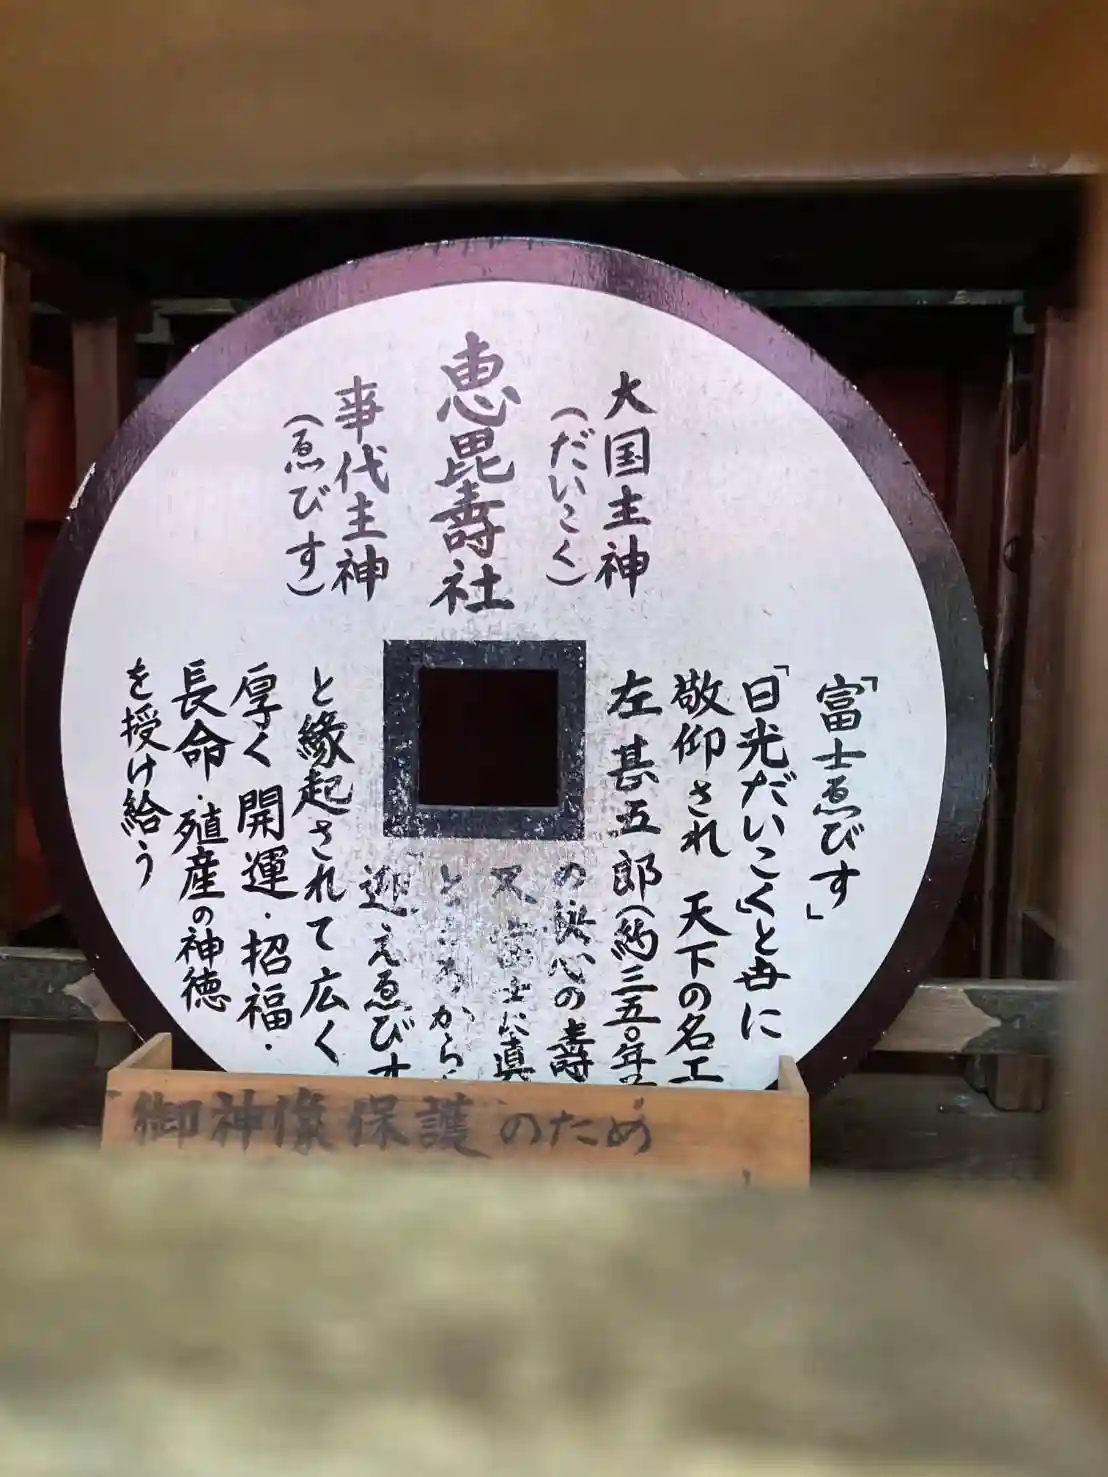 大国主神
(だいこく)
恵毘壽社
事代主神
(ゑびす)
「富士ゑびす」
「日光だいこく」と共に
敬仰され 天下の名工
左甚五郎(約三五〇年
の決心の壽
又富士に真
ところから
迎えゑびす
と縁起されて広く
厚く開運・招福・
長命・殖産の神徳
を授け給う
御神像保護のため